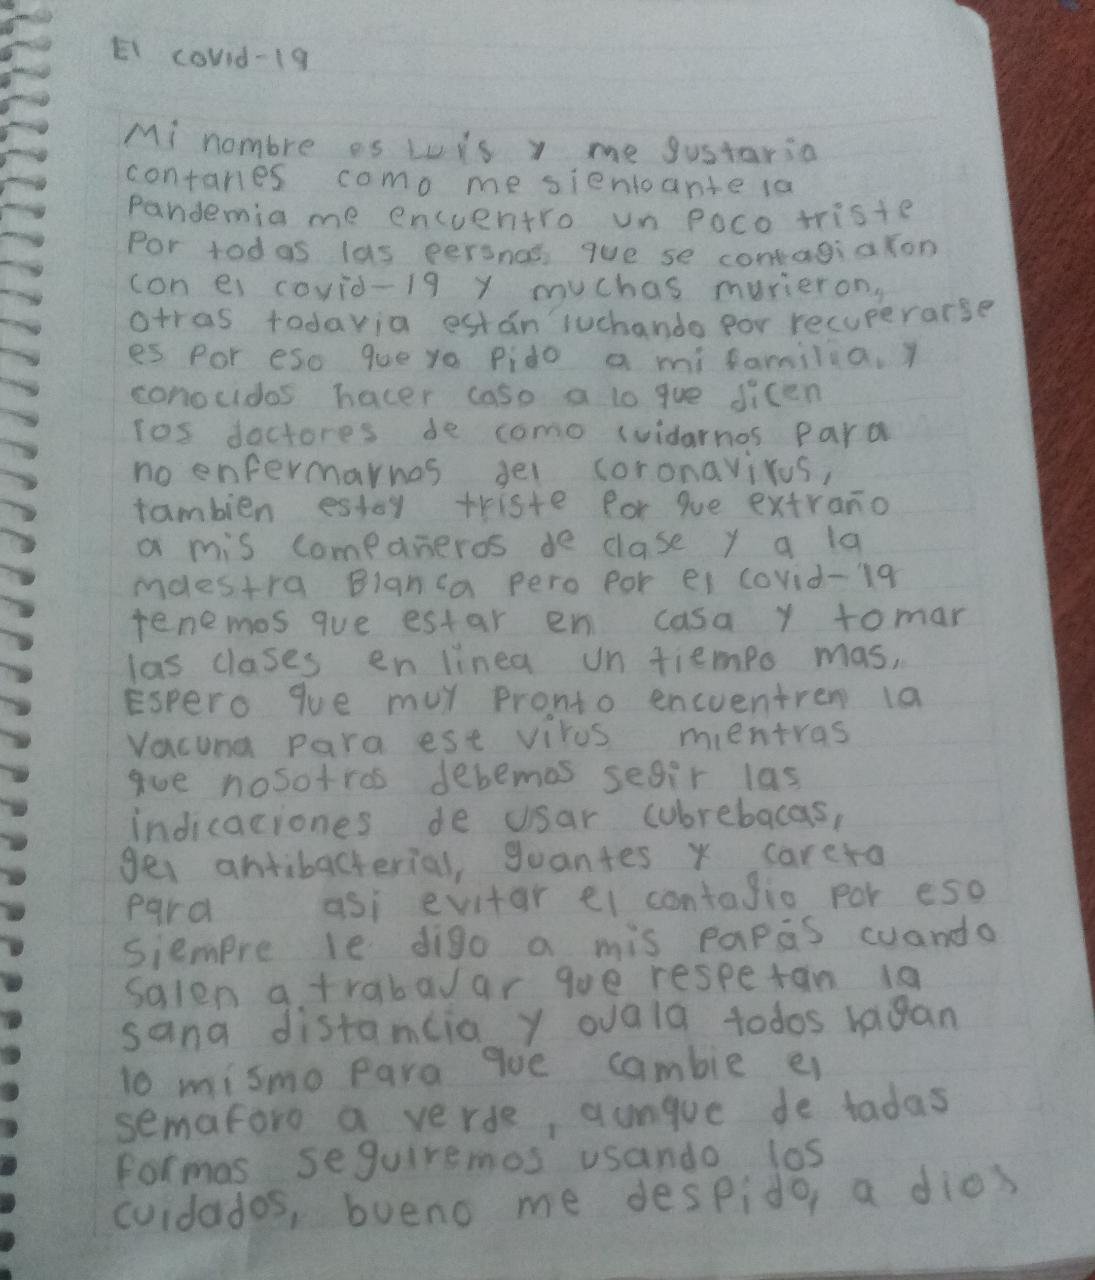 El covid-19
Mi nombre es Luis y me gustaria
contarles como me siento ante la
Pandemia me encuentro un Poco triste
Por todas las persnas que se contagiaron
con el covid-19 y muchas murieron,
otras todavia están luchando por recuperarse
es Por eso que yo Pido a mi familia, y
conocidos hacer caso a lo que dicen
los doctores de como cuidarnos Para
no enfermarnos del coronavirus,
tambien estoy triste Por que extraño
a mis compañeros de clase y a la
maestra Blanca pero por el covid-19
tenemos que estar en casa y tomar
las clases en linea un tiempo mas,
Espero que muy Pronto encuentren la
Vacuna para ese virus mientras
que nosotros debemos segir las
indicaciones de usar cubrebacas,
gel antibacterial, guantes y careta
para asi evitar el contagio por eso
siempre le digo a mis papás cuando
salen a trabajar que respetan la
sana distancia y ojala todos hagan
lo mismo para que cambie el
semaforo a verde, aunque de tadas
formas seguiremos usando los
cuidados, bueno me despido, a dios